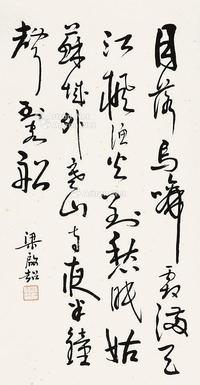 月落烏啼霜滿天
江楓漁火對愁眠姑
蘇城外寒山寺夜半鐘
聲到客船
梁啟超